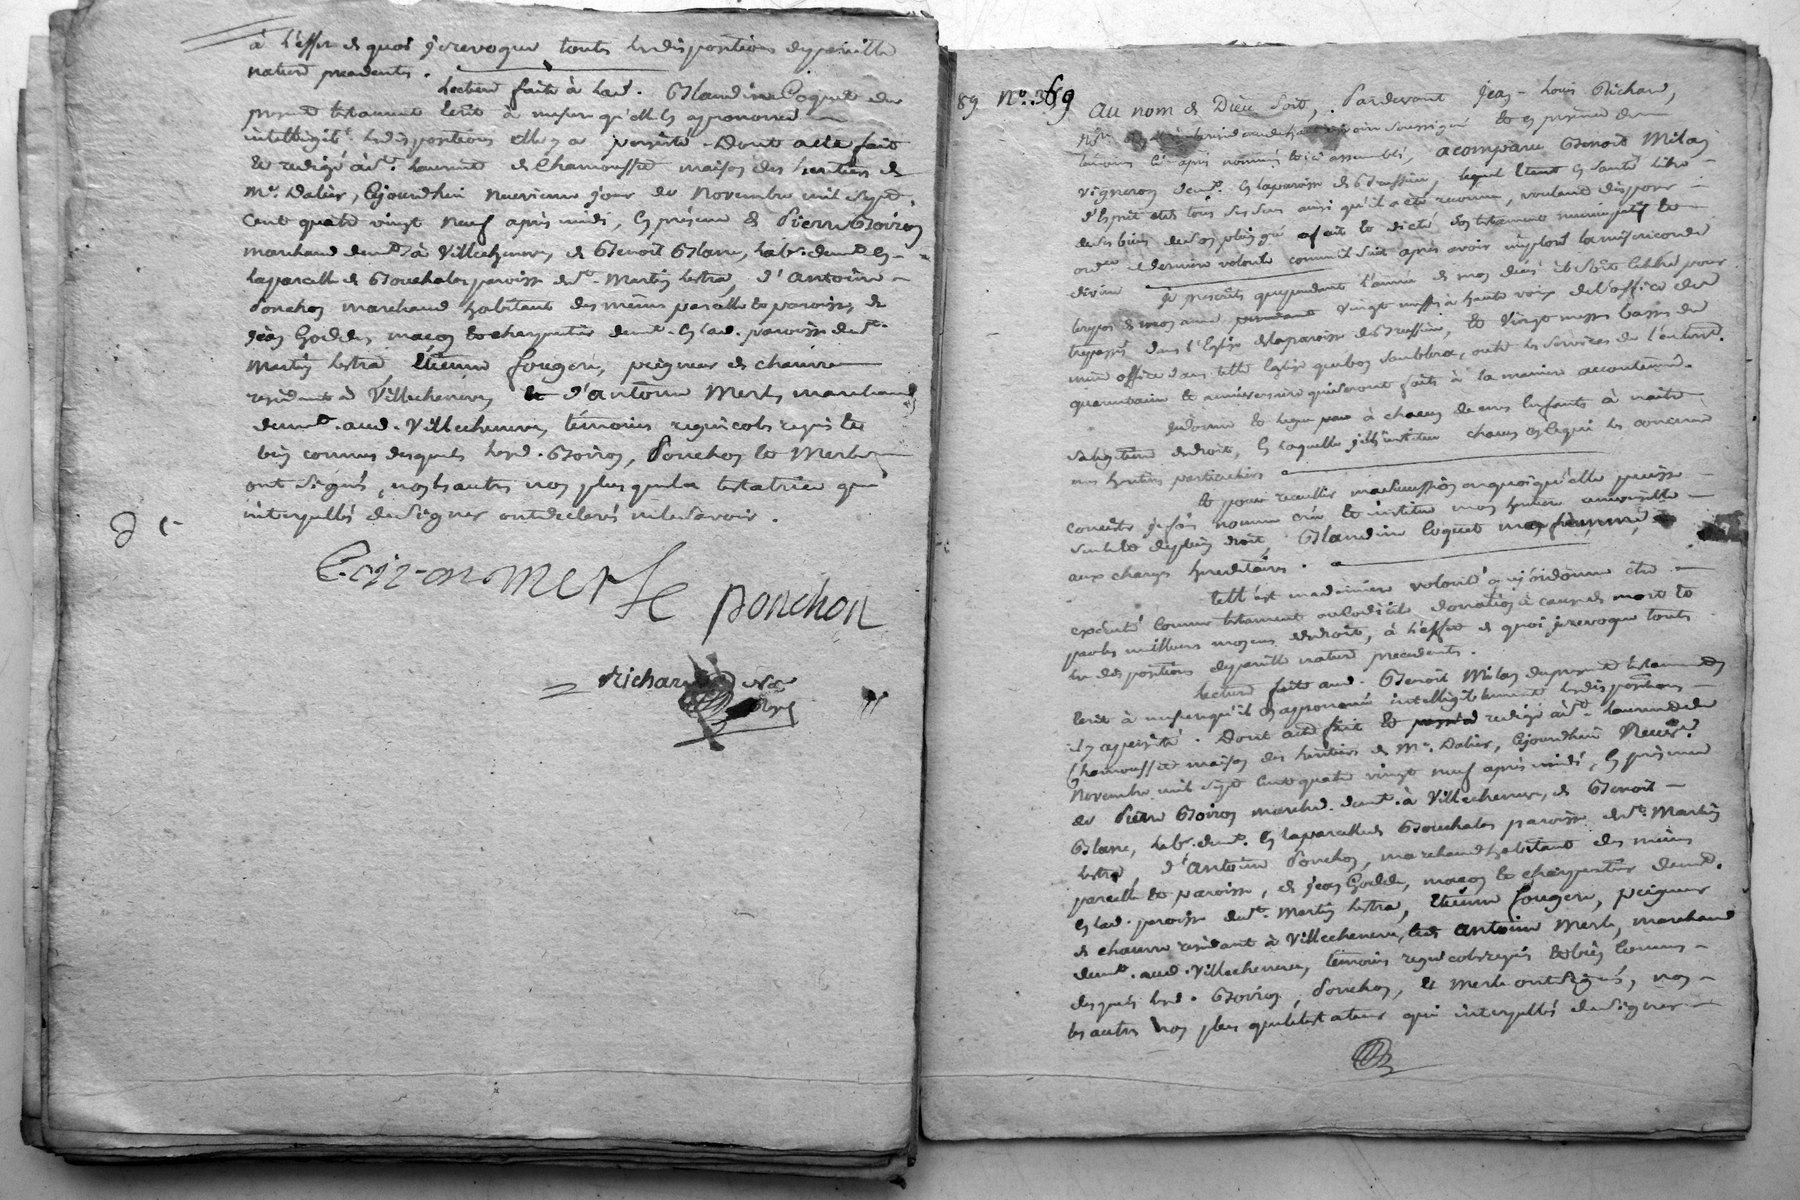 à l'effet de quoi je revoque toutes les dispositions de pareille
nature precedentes.
Lecture faite à lad. Claudine Coquet du
present testament écrit à mesure qu'elle l'a prononcé
intelligibt. les dispositions elle y a persisté. Dont acte fait
et redigé à St. Laurent de Chamousset maison des heritiers de
Mr. Dalier, cejourdhui neuvieme jour de Novembre mil sept
cent quatre vingt neuf après midi, en présence de Pierre Goiron
marchand demt. à Villechenève, de Benoit Blanc, labr. demt. en
la parcelle de Bouchalas paroisse de St. Martin Lestra, d'Antoine
Ponchon marchand habitant des mêmes parcelle et paroisse, de
Jean Goddet, maçon et charpentier demt. en lad. paroisse de St.
Martin Lestra, Etienne Fougere, peigneur de chanvre
residant à Villechenève, et d'antoine Merle marchand
demt. aud. Villechenève, témoins requis
bien connus desquels lesd. Goiron, Ponchon et Merle
ont signés, non les autres non plus que la testatrice qui
interpellés de signer ont declarés ne le savoir.
merle ponchon
Richard
89 No. 369
Au nom de Dieu soit, Pardevant Jean-Louis Richard,
soussigné et en présence des
temoins cy après nommés, a comparu Benoit Milan
vigneron demt. en la paroisse de Brussieu, lequel étant en santé libre
d'Esprit et de tous ses sens ainsi qu'il a été reconnu, voulant disposer
de ses biens de son plein gré a fait et dicté son testament nuncupatif et
ordre de derniere volonté comme suit après avoir imploré la misericorde
divine
Je prescrits que pendant l'année de mon deces il soit celebré pour
le repos de mon ame vingt messes à haute voix de l'office des
trepassés dans l'Eglise de la paroisse de Brussieu, et vingt messes basses du
même office dans telle Eglise que bon semblera, outre les services de l'enterrt.
quarantaine et anniversaire qui seront faits à la maniere accoutumée.
Je donne et legue à chacun de mes Enfants à naitre
la legitime de droit, en laquelle je les institue chacun en ce qui les concerne
mes heritiers particuliers
Et pour recueillir ma succession en quoi qu'elle puisse
consister je fais nomme crée et institue mon heritiere universelle
seule et de plein droit, Claudine Coquet ma femme,
aux charges hereditaires.
Telle est ma derniere volonté que j'ordonne être
exécuté comme testament ou codicile donation à cause de mort et
par les meilleurs moyens de droit, à l'effet de quoi je revoque toutes
les dispositions de pareille nature precedentes.
Lecture faite aud. Benoit Milan du present testament
écrit à mesure qu'il en a prononcé intelligiblement les dispositions
il y a persisté. Dont acte fait et redigé à St. Laurent de
Chamousset maison des heritiers de Mr. Dalier, cejourdhui neuf
Novembre mil sept cent quatre vingt neuf après midi, en présence
de Pierre Goiron marchd. demt. à Villechenève, de Benoit
Blanc, labr. demt. en la parcelle de Bouchalas paroisse de St. Martin
Lestra, d'Antoine Ponchon, marchand habitant des mêmes
parcelle et paroisse, de Jean Goddet, maçon et charpentier demt.
en lad. paroisse de St. Martin Lestra, Etienne Fougere, peigneur
de chanvre residant à Villechenève, et d'antoine Merle, marchand
demt. aud. Villechenève, témoins requis et bien connus
desquels lesd. Goiron, Ponchon, et Merle ont signés, non
les autres non plus que le testateur qui interpellés de signer